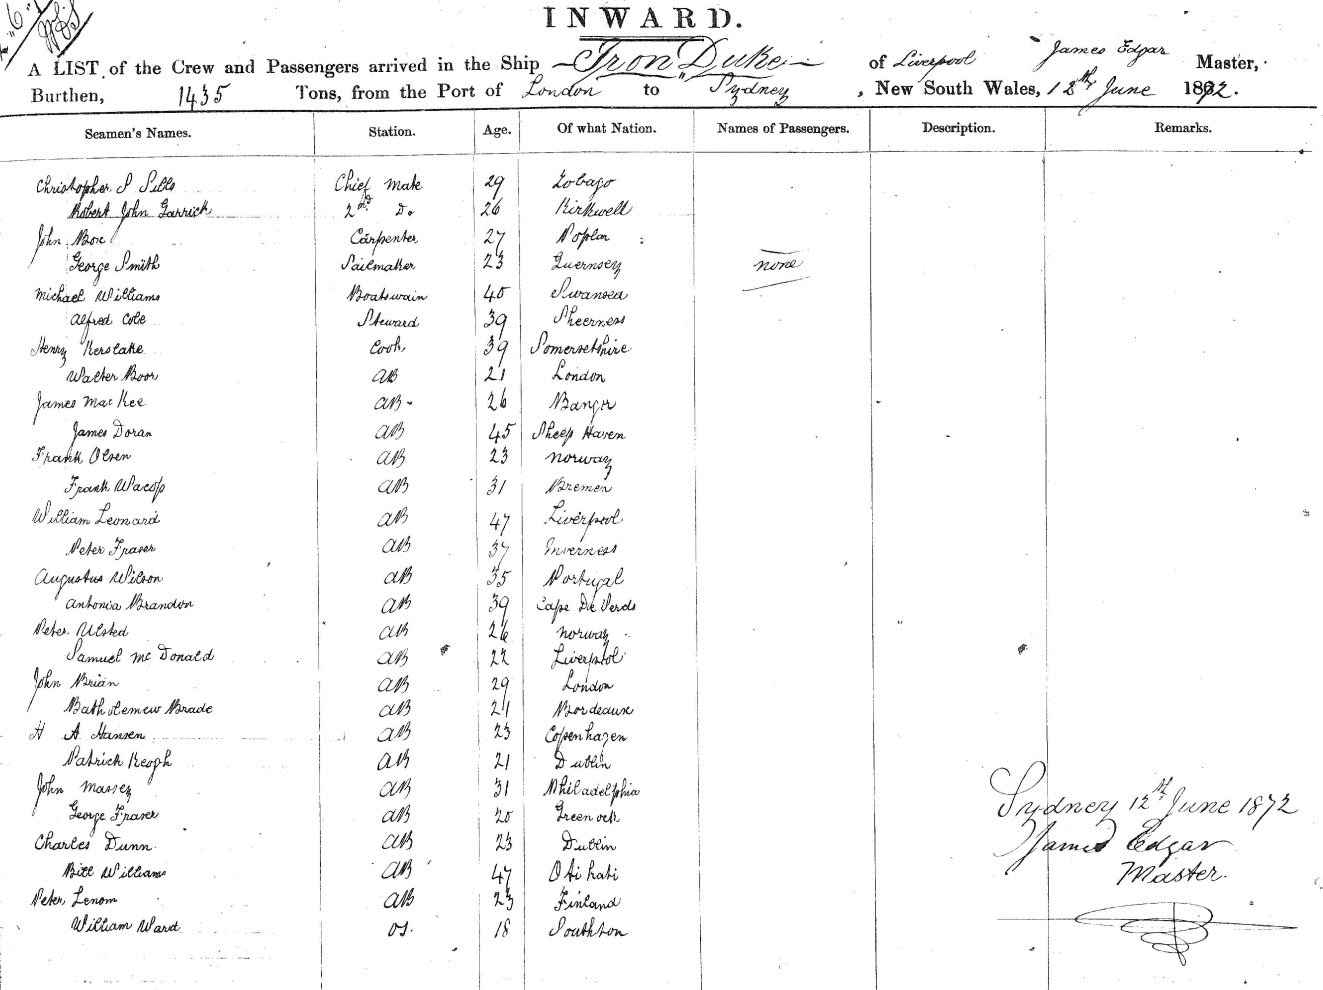 INWARD.
A LIST of the Crew and Passengers arrived in the Ship Iron Duke of Liverpool James Edgar Master,
Burthen, 1435 Tons, from the Port of London to Sydney, New South Wales, 12th June 1872.
Seamen's Names. Station. Age. Of what Nation. Names of Passengers. Description. Remarks.
Christopher S Chief Mate 29 Tobago
Robert John Garrick 2nd Do 26 Kirkwell
John Box Carpenter 27 Poplar
George Smith Sailmaker 23 Guernsey none
Michael Williams Boatswain 40 Swansea
Alfred Cole Steward 39 Sheerness
Henry Kerslake Cook 39 Somersetshire
Walter Boor AB 21 London
James MacKee AB 26 Bangor
James Doran AB 45 Sheep Haven
Frank Olsen AB 23 Norway
Frank AB 31 Bremen
William Leonard AB 47 Liverpool
Peter Fraser AB 37 Inverness
Augustus Wilson AB 35 Portugal
Antonia Brandon AB 39 Cape De Verds
Peter Ulsted AB 26 Norway
Samuel Mc Donald AB 22 Liverpool
John Brian AB 29 London
Batholemew Brade AB 21 Bordeaux
H A Hansen AB 23 Copenhagen
Patrick Keoph AB 21 Dublin
John Massey AB 31 Philadelphia
George Fraser AB 20 Greenock
Charles Dunn AB 23 Dublin
Bill Williams AB 47 Otihati
Peter Lenom AB 23 Finland
William Ward OS. 18 Southton
Sydney 12th June 1872
James Edgar
Master.